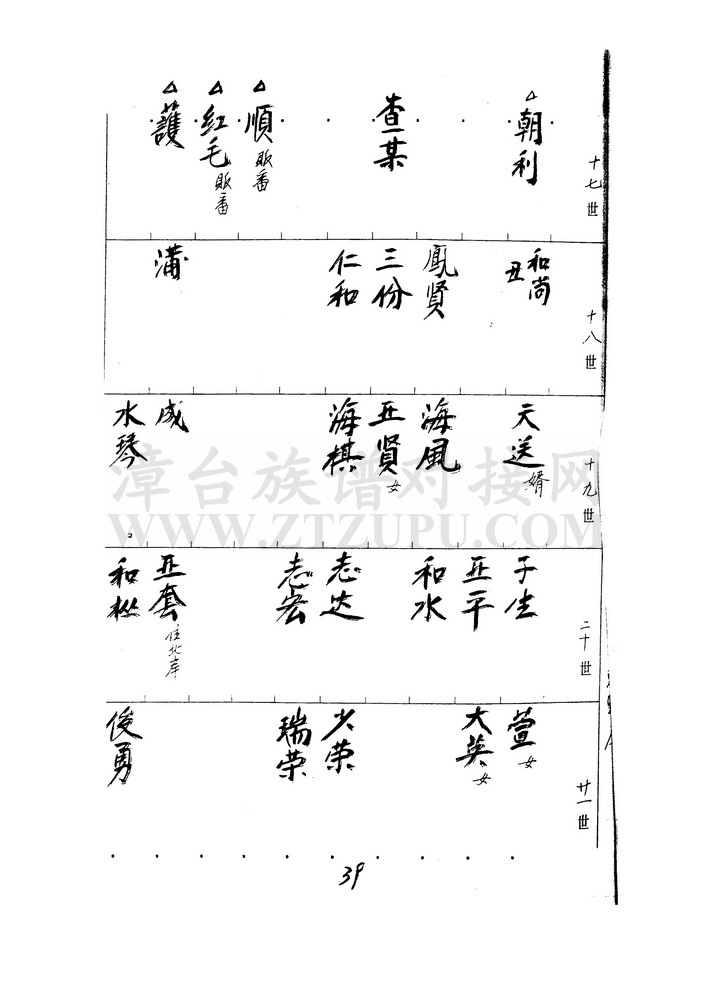 十七世
朝利
查某
順 販番
紅毛 販番
護
十八世
和尚
丑
鳳賢
三份
仁和
滿
十九世
天送 婿
海風
亚賢 女
海棋
成
水琴
漳台族谱对接网
WWW.ZTZUPU.COM
二十世
子生
亚平
和水
志达
志宏
亚套 住北岸
和彬
廿一世
萱 女
大英 女
少荣
瑞荣
俊勇
39